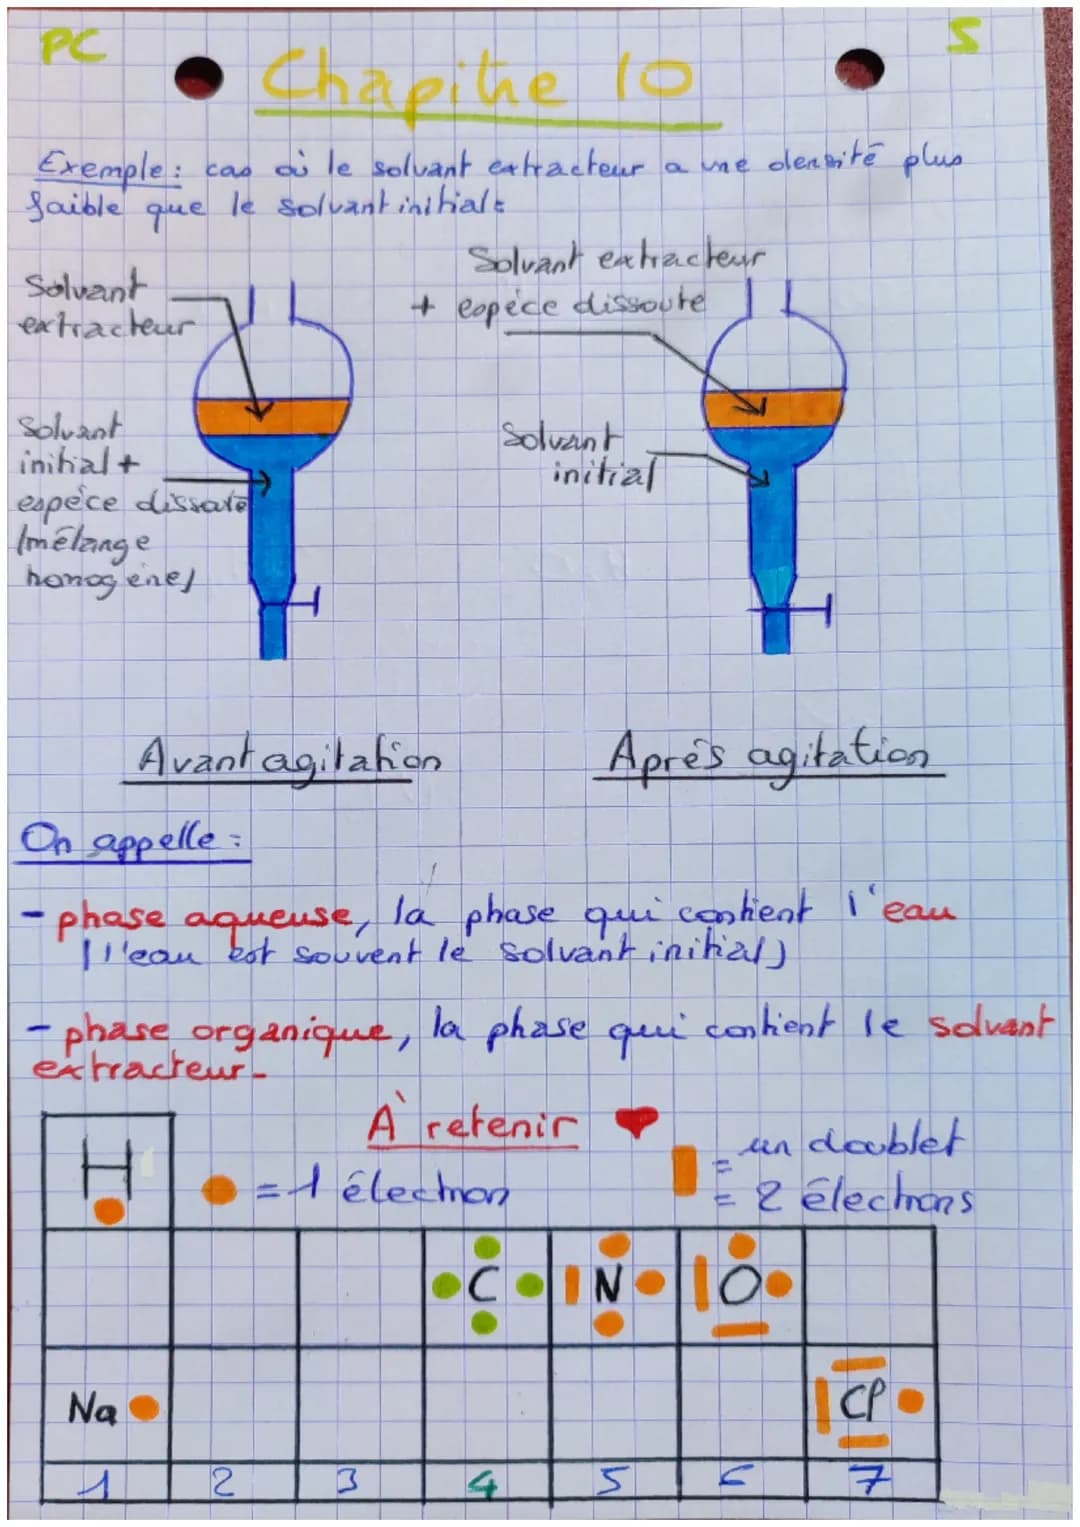 PC
5
Chapitre 10
Exemple : cas où le solvant extracteur a une densité plus
faible que le solvant initial :
Solvant
extracteur
Solvant extracteur
+ espèce dissoute
Solvant
initial +
espèce dissoute
(mélange
homogène)
Solvant
initial
Avant agitation
Après agitation
On appelle :
- phase aqueuse, la phase qui contient l'eau
(l'eau est souvent le solvant initial)
- phase organique, la phase qui contient le solvant
extracteur.
À retenir
H
= 1 électron
= un doublet
= 2 électrons
C
N
O
Na
Cl
1 2 3 4 5 6 7